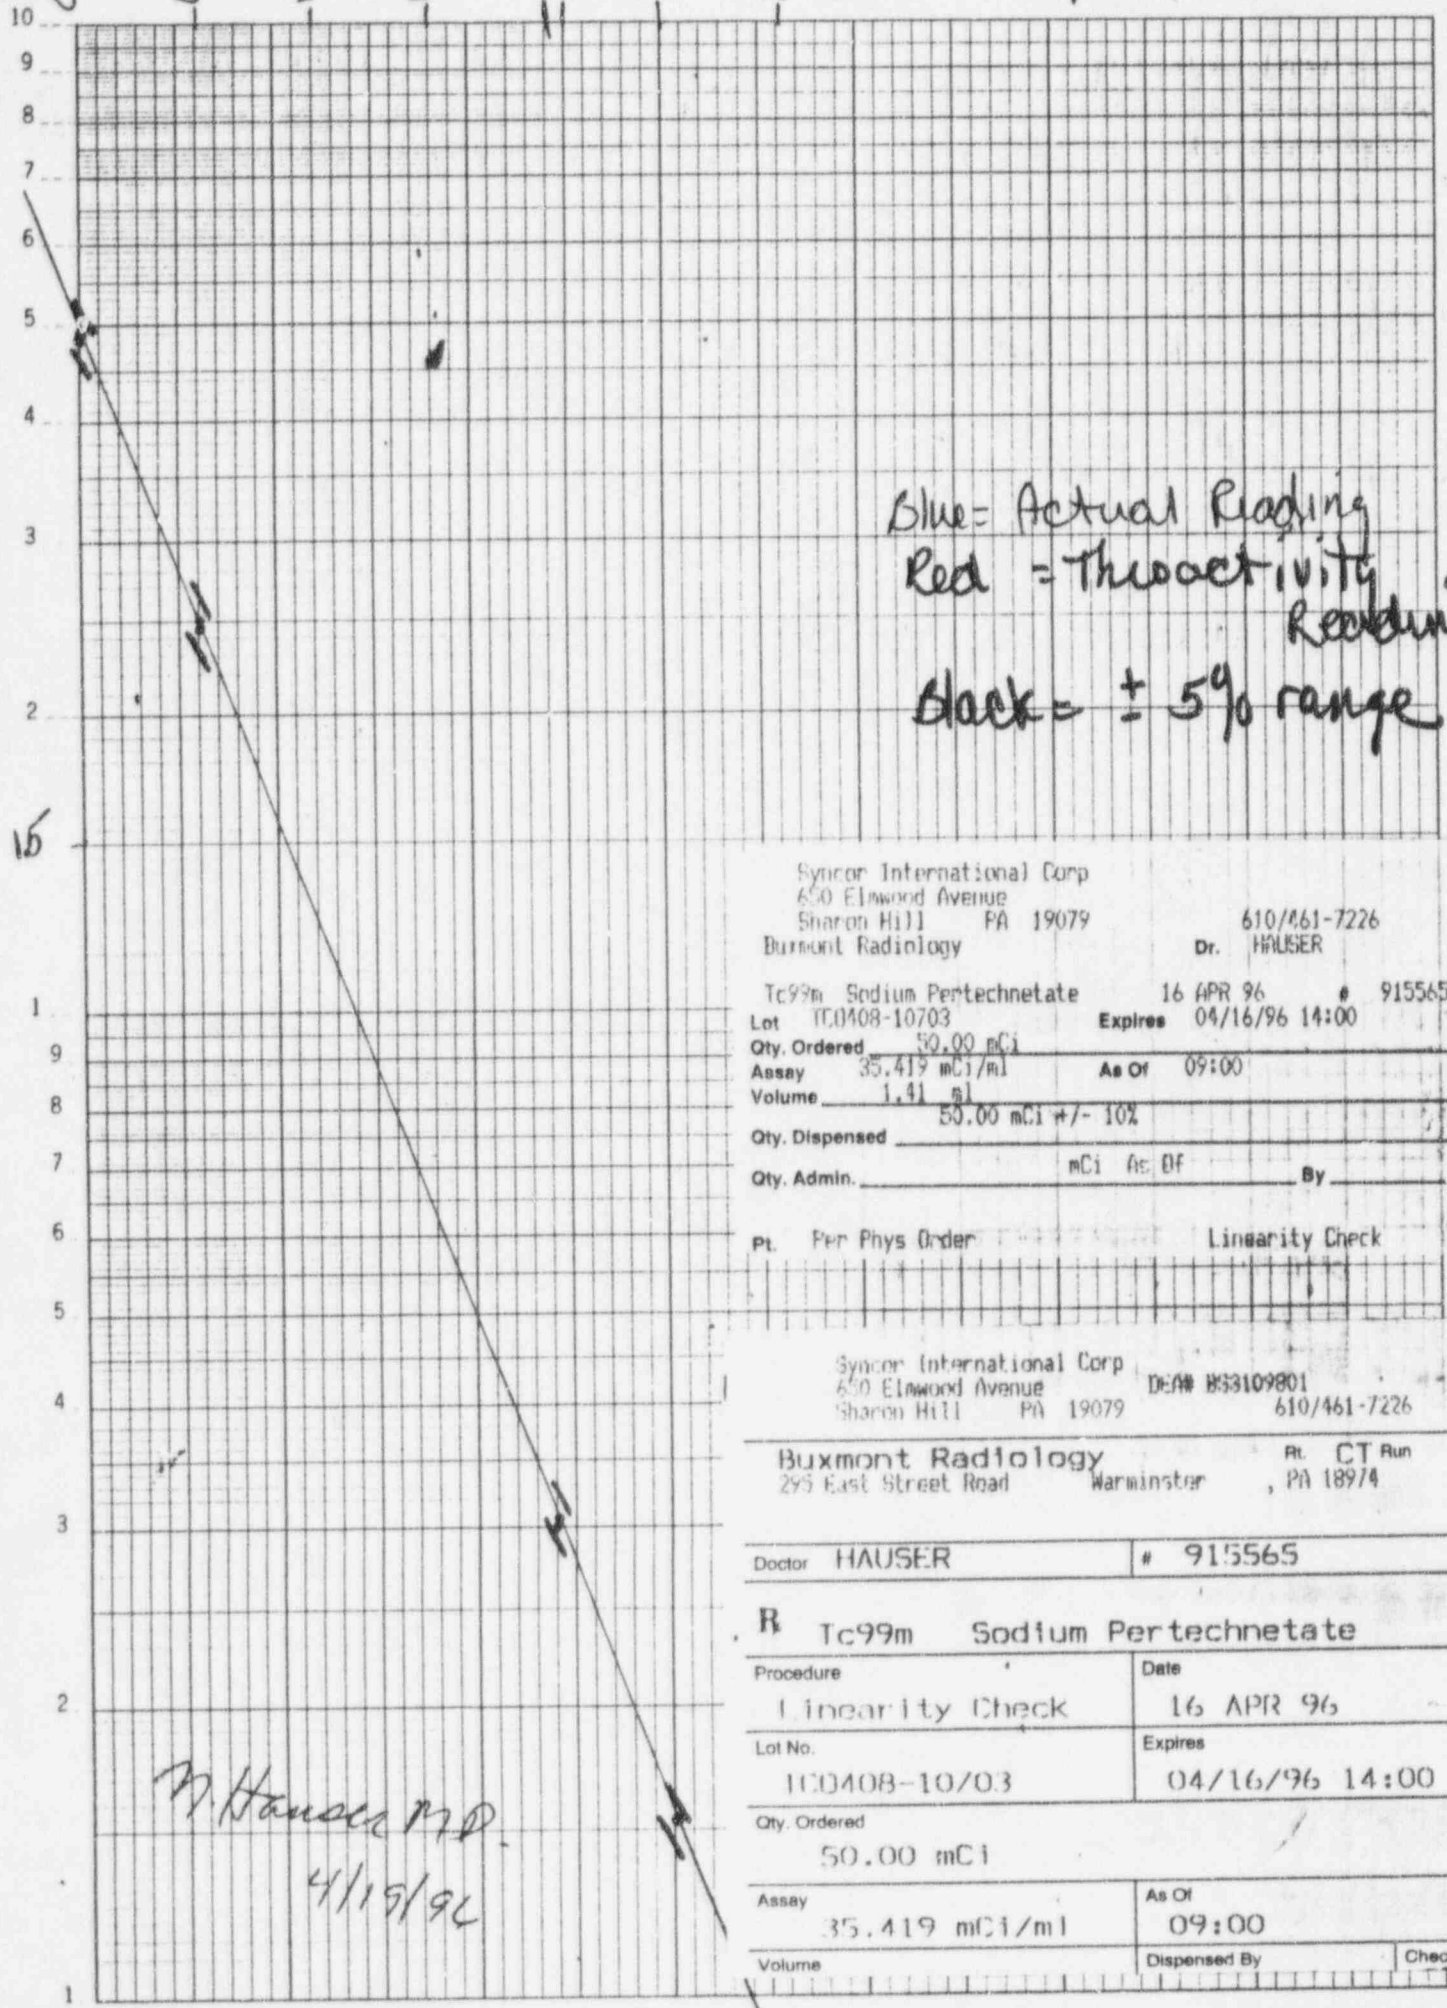 10
9
8
7
6
5
4
3
2
15
1
9
8
7
6
5
4
3
2
1
Blue = Actual Reading
Red =
Black = ± 5% range
Syncor International Corp
650 Elmwood Avenue
Sharon Hill PA 19079 610/461-7226
Buxmont Radiology Dr. HAUSER
Tc99m Sodium Pertechnetate 16 APR 96 # 915565
Lot TC0408-10703 Expires 04/16/96 14:00
Qty. Ordered 50.00 mCi
Assay 35.419 mCi/ml As Of 09:00
Volume 1.41 ml
50.00 mCi +/- 10%
Qty. Dispensed
Qty. Admin. mCi As Of By
Pt. Per Phys Order Linearity Check
Syncor International Corp
650 Elmwood Avenue DEA# BS3109801
Sharon Hill PA 19079 610/461-7226
Buxmont Radiology Rt. CT Run
295 East Street Road Warminster , PA 18974
Doctor HAUSER # 915565
R Tc99m Sodium Pertechnetate
Procedure Date
Linearity Check 16 APR 96
Lot No. Expires
TC0408-10703 04/16/96 14:00
Qty. Ordered
50.00 mCi
Assay As Of
35.419 mCi/ml 09:00
Volume Dispensed By Chec
N. Hauser M.D.
4/19/96